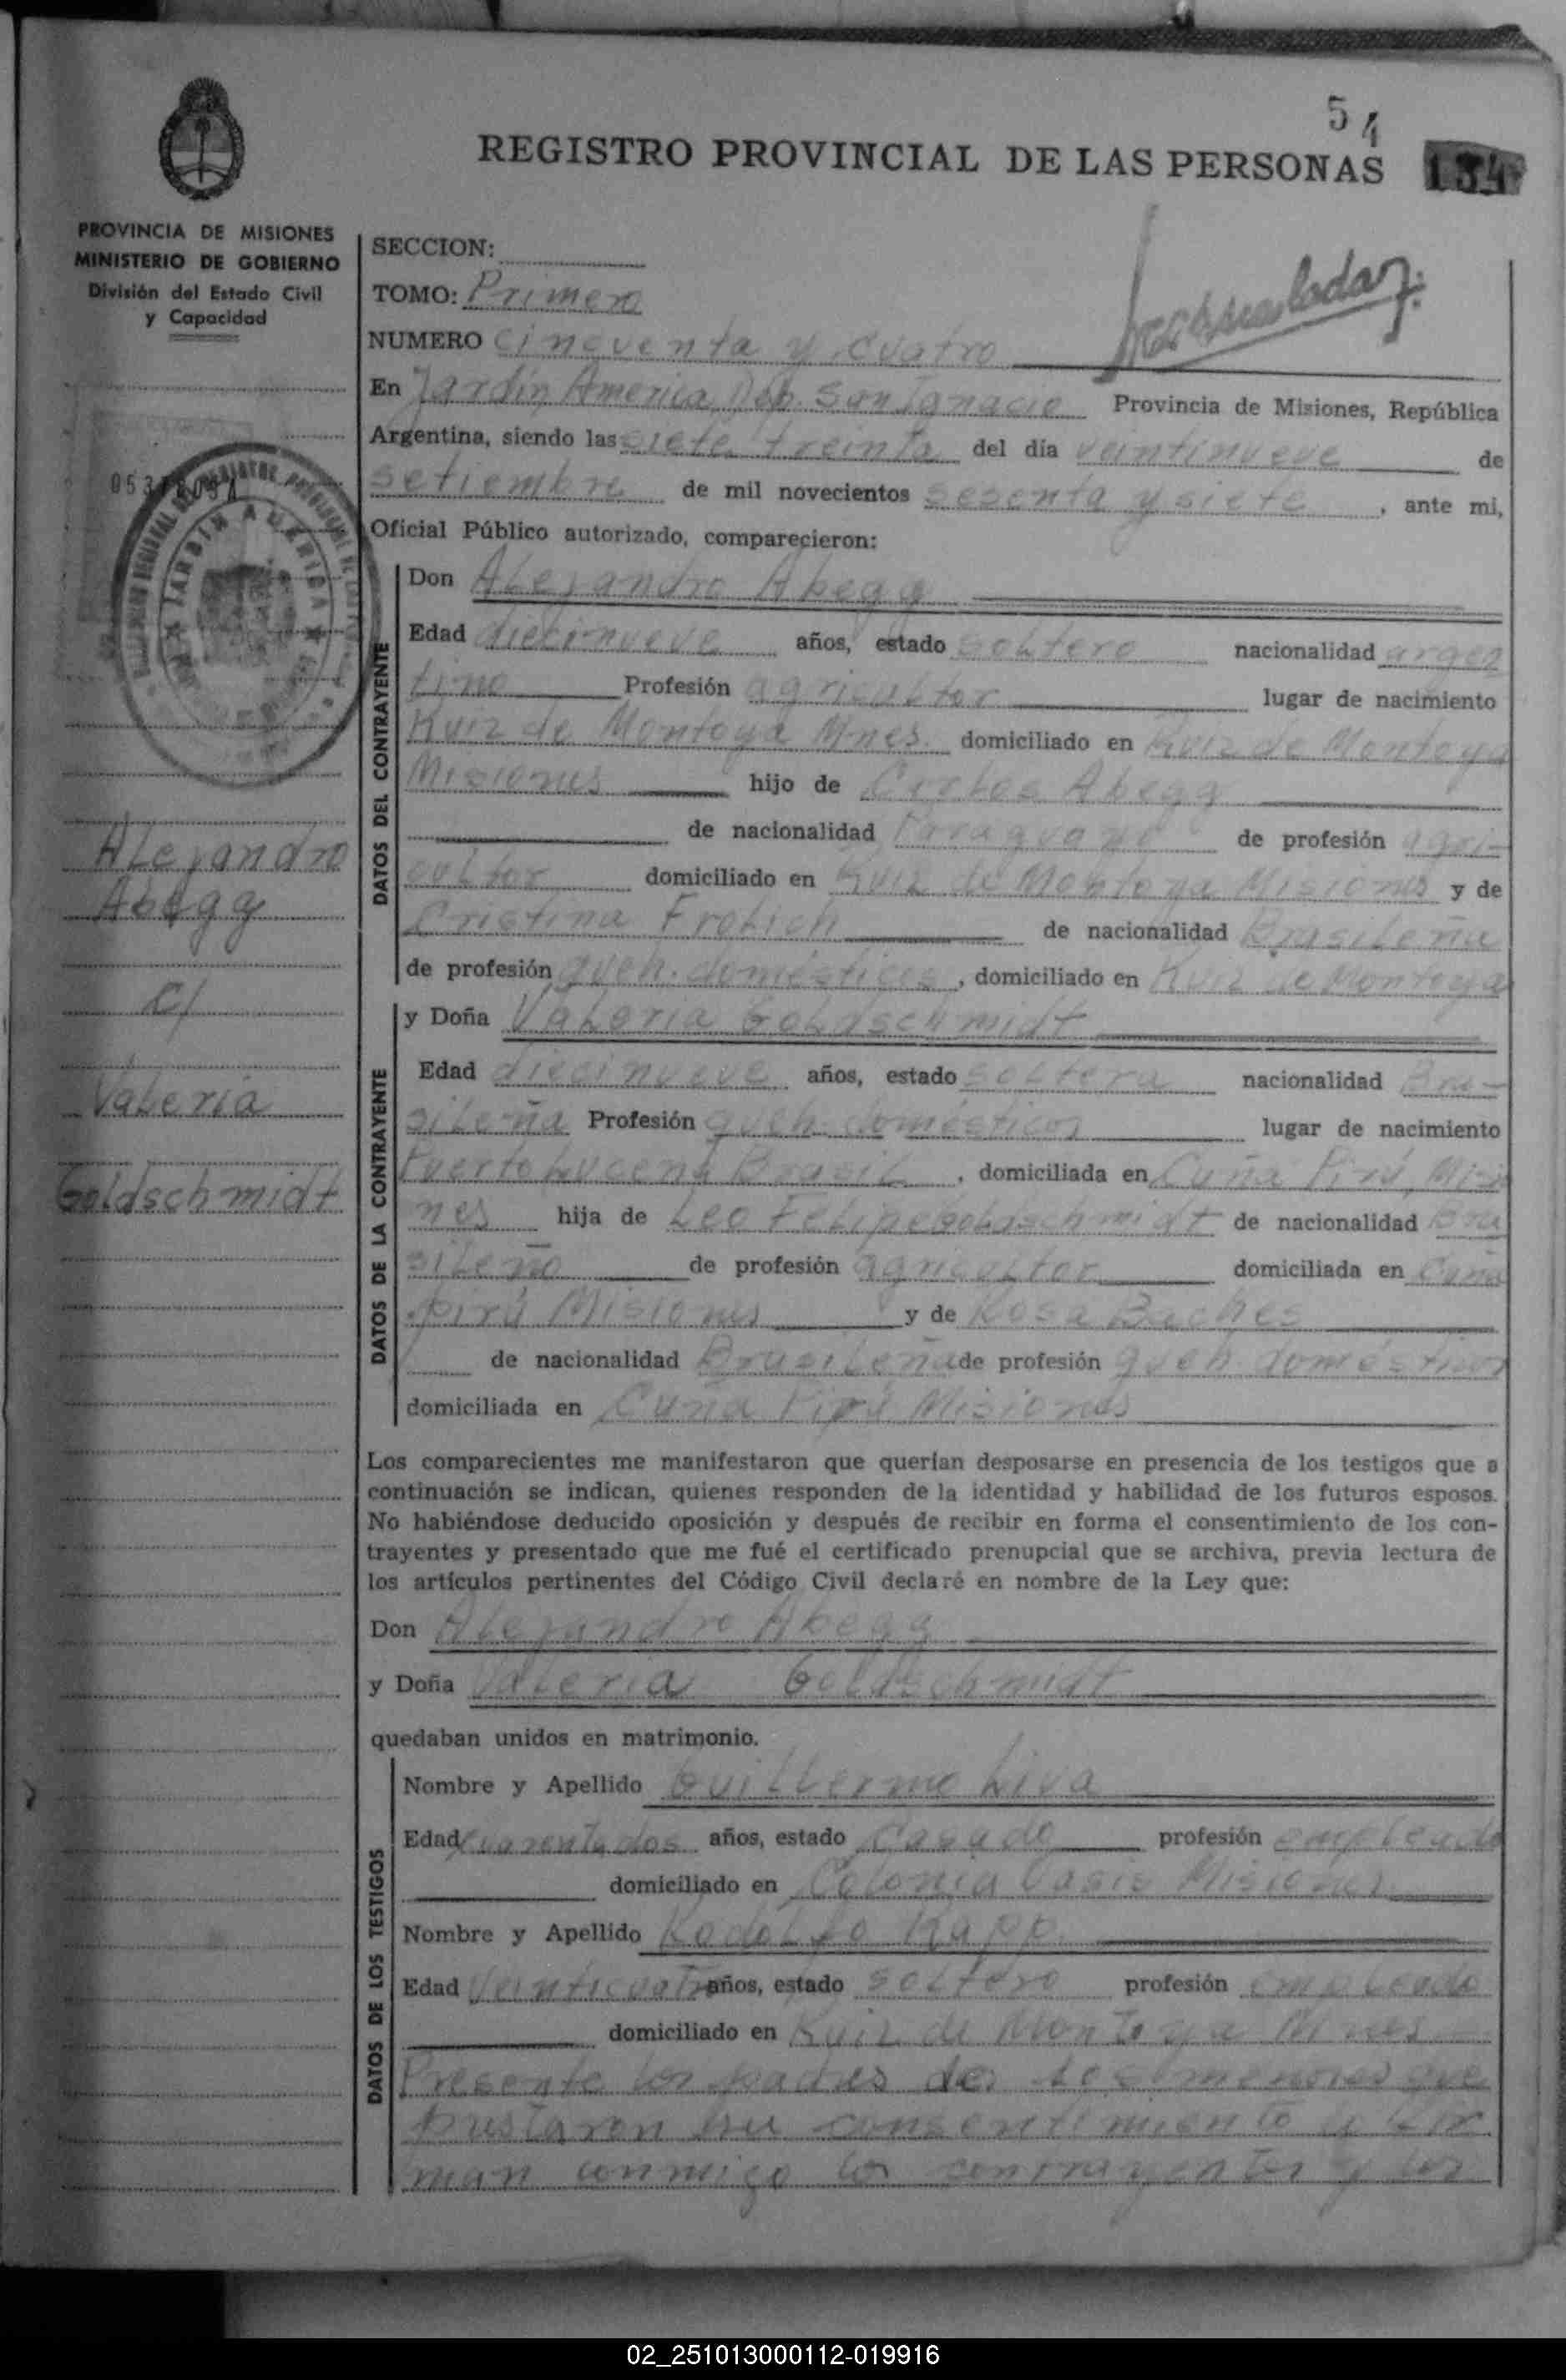 54
REGISTRO PROVINCIAL DE LAS PERSONAS
134
PROVINCIA DE MISIONES
MINISTERIO DE GOBIERNO
División del Estado Civil
y Capacidad
SECCION:
TOMO: Primero
NUMERO cincuenta y cuatro
En Jardín America Dep. San Ignacio Provincia de Misiones, República
Argentina, siendo las siete treinta del día veintinueve de
setiembre de mil novecientos sesenta y siete, ante mi,
Oficial Público autorizado, comparecieron:
DATOS DEL CONTRAYENTE
Don Alejandro Abegg
Edad diecinueve años, estado soltero nacionalidad argen
tino Profesión agricultor lugar de nacimiento
Ruiz de Montoya Mnes. domiciliado en Ruiz de Montoya
Misiones hijo de Carlos Abegg
de nacionalidad Paraguayo de profesión agri-
cultor domiciliado en Ruiz de Montoya Misiones y de
Cristina Frolich de nacionalidad Brasileña
de profesión queh. domésticos, domiciliado en Ruiz de Montoya
DATOS DE LA CONTRAYENTE
y Doña Valeria Goldschmidt
Edad diecinueve años, estado soltera nacionalidad Bra-
sileña Profesión queh. domésticos lugar de nacimiento
Puerto Lucena Brasil, domiciliada en Cuña Pirú, Misio
nes hija de Leo Felipe Goldschmidt de nacionalidad Bra
sileño de profesión agricultor domiciliada en Cuña
pirú Misiones y de Rosa Baches
de nacionalidad Brasileña de profesión queh. domésticos
domiciliada en Cuña Pirú Misiones
Alejandro
Abegg
c/
Valeria
Goldschmidt
Los comparecientes me manifestaron que querían desposarse en presencia de los testigos que a
continuación se indican, quienes responden de la identidad y habilidad de los futuros esposos.
No habiéndose deducido oposición y después de recibir en forma el consentimiento de los con-
trayentes y presentado que me fué el certificado prenupcial que se archiva, previa lectura de
los artículos pertinentes del Código Civil declaré en nombre de la Ley que:
Don Alejandro Abegg
y Doña Valeria Goldschmidt
quedaban unidos en matrimonio.
DATOS DE LOS TESTIGOS
Nombre y Apellido Guillermo Liva
Edad cuarentados años, estado Casado profesión empleado
domiciliado en Colonia Oasis Misiones
Nombre y Apellido Rodolfo Rapp
Edad veinticuatro años, estado soltero profesión empleado
domiciliado en Ruiz de Montoya Mnes
Presente los padres de los menores que
prestaron su consentimiento y fir
man conmigo los contrayentes y los
02_251013000112-019916